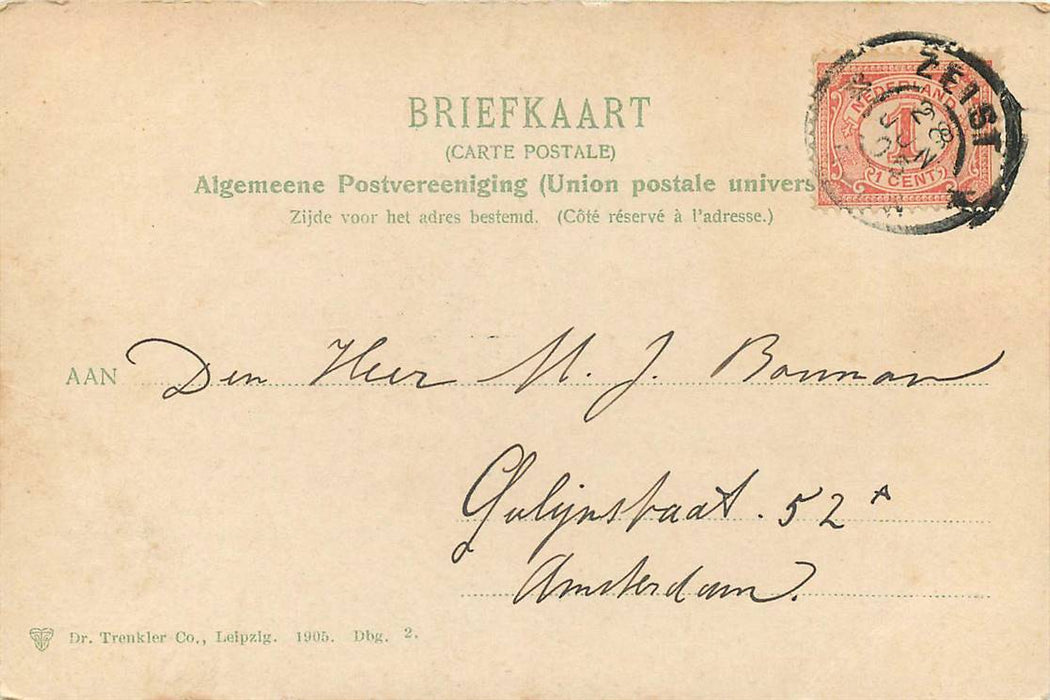 BRIEFKAART
(CARTE POSTALE)
Algemeene Postvereeniging (Union postale univers
Zijde voor het adres bestemd. (Côté réservé à l'adresse.)
ZEIST
NEDERLAND
1
1 CENT
28 JUN
AAN Den Heer M. J. Bouman
52 A
Amsterdam.
Dr. Trenkler Co., Leipzig. 1905. Dbg. 2.